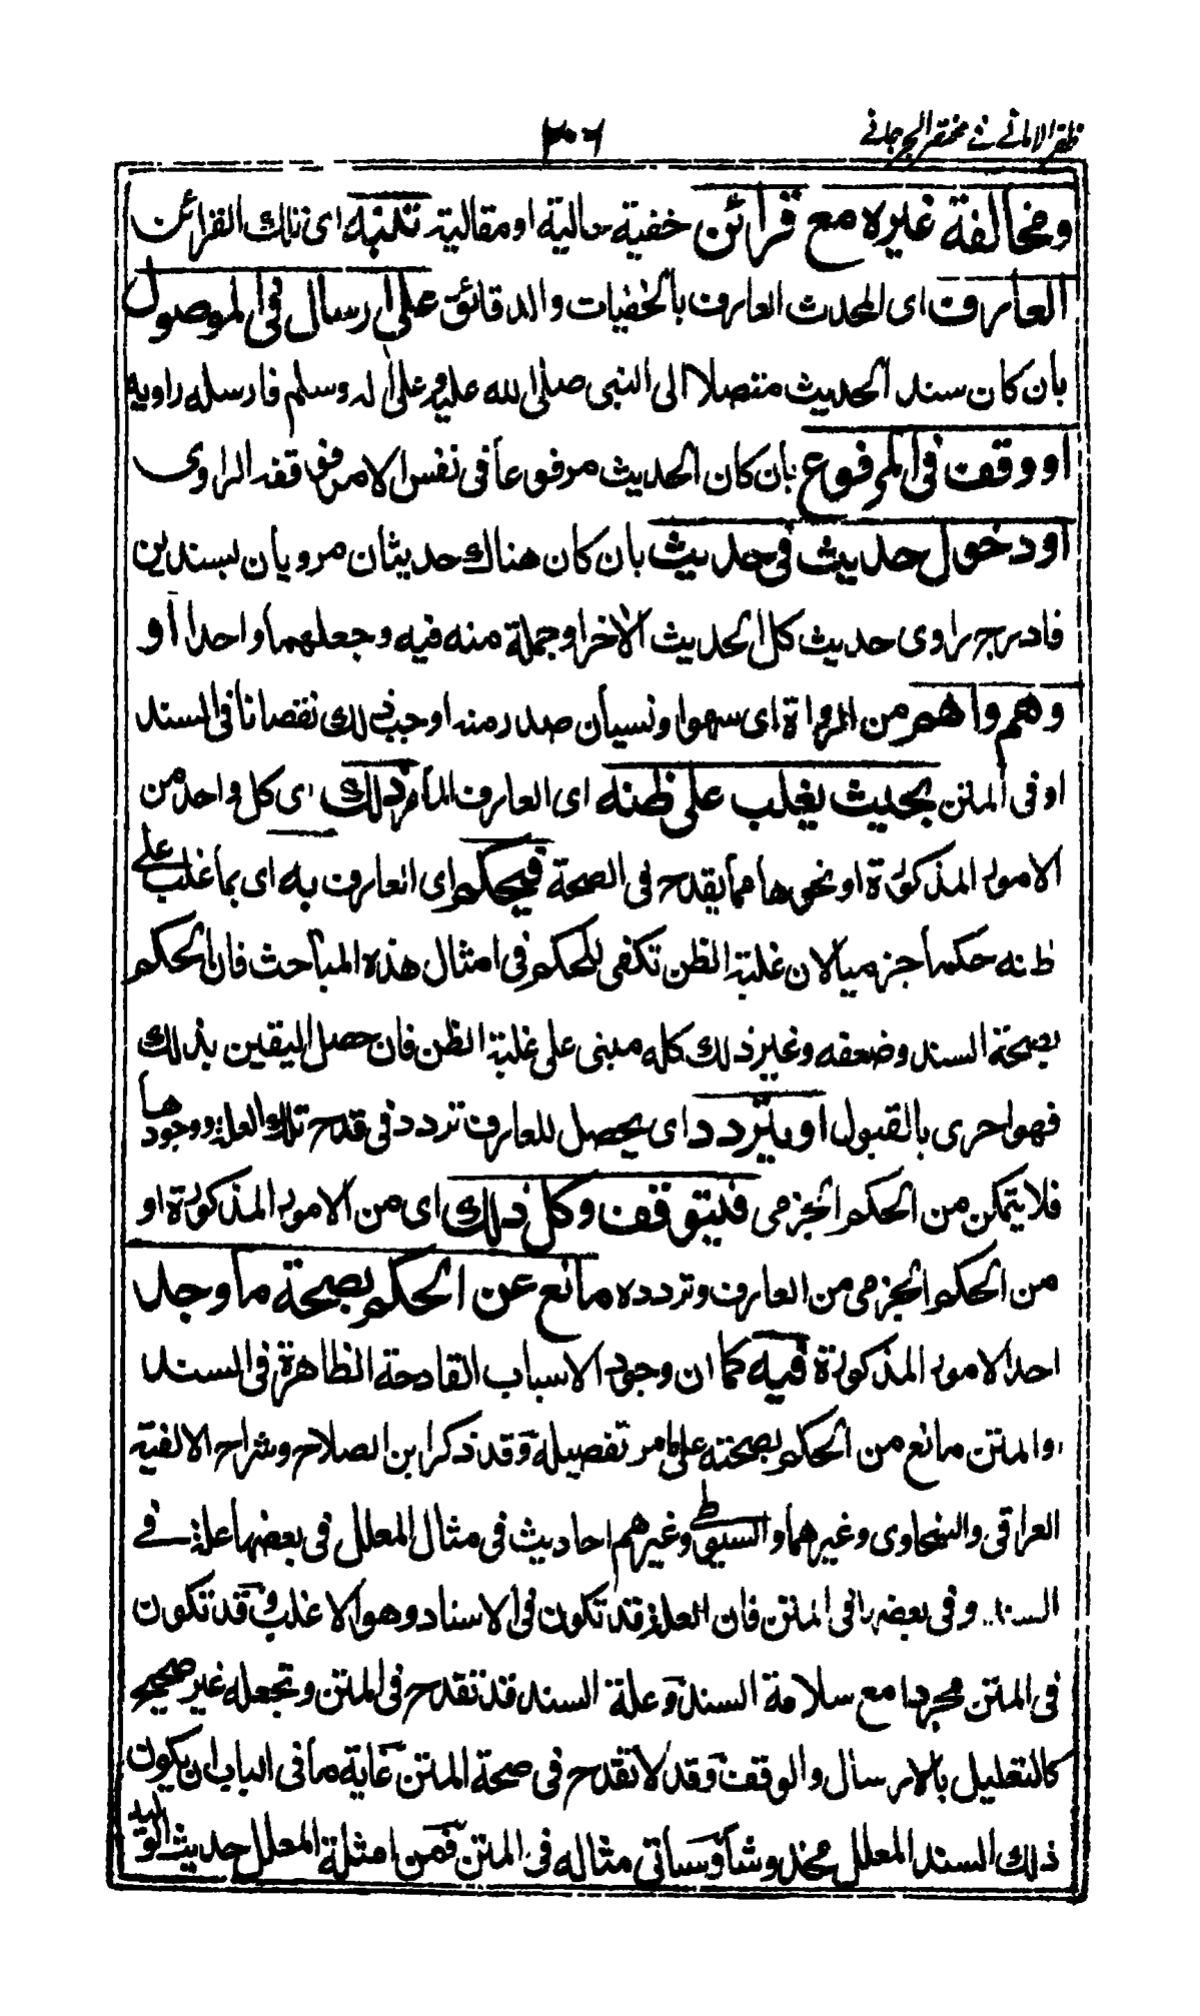 ظفر الامانے نے مختصر الجرجانے
٢٠٦
ومخالفة غيره مع قرائن خفية حالية او مقالية تنبه اى تلك القرائن
العارف اى المحدث العارف بالخفيات والدقائق على ارسال فى الموصول
بان كان سند الحديث متصلا الى النبى صلى الله عليه وعلى اله وسلم فارسله راويه
او وقف فى المرفوع بان كان الحديث مرفوعا فى نفس الامر فوقفه الراوى
او دخول حديث فى حديث بان كان هناك حديثان مرويان بسندين
فادرج راوى حديث كل الحديث الاخر او جملة منه فيه وجعلهما واحدا او
وهم واهم من الرواة اى سهوا ونسيان صدر منه اوجب ذلك نقصانا فى السند
او فى المتن بحيث يغلب على ظنه اى العارف الماهر ذلك اى كل واحد من
الامور المذكورة او نحوها مما يقدح فى الصحة فيحكم اى العارف به اى بما غلب على
ظنه حكما جزميا لان غلبة الظن تكفى للحكم فى امثال هذه المباحث فان الحكم
بصحة السند وضعفه وغير ذلك كله مبنى على غلبة الظن فان حصل اليقين بذلك
فهو احرى بالقبول او يتردد اى يحصل للعارف تردد فى قدح تلك العلة ووجودها
فلا يتمكن من الحكم الجزمى فيتوقف وكل ذلك اى من الامور المذكورة او
من الحكم الجزمى من العارف وتردده مانع عن الحكم بصحة ما وجد
احد الامور المذكورة فيه كما ان وجود الاسباب القادحة الظاهرة فى السند
والمتن مانع من الحكم بصحته على ما مر تفصيله وقد ذكر ابن الصلاح وشراح الالفية
العراقى والسخاوى وغيرهما والسيوطى وغيرهم احاديث فى مثال المعلل فى بعضها علة فے
السند وفى بعضها فى المتن فان العلة قد تكون فى الاسناد وهو الاغلب وقد تكون
فى المتن مجردا مع سلامة السند وعلة السند قد تقدح فى المتن وتجعله غير صحيح
كالتعليل بالارسال والوقف وقد لا تقدح فى صحة المتن غاية ما فى الباب ان يكون
ذلك السند المعلل مخدوشا وسياتى مثاله فى المتن فمن امثلة المعلل حديث الوليد